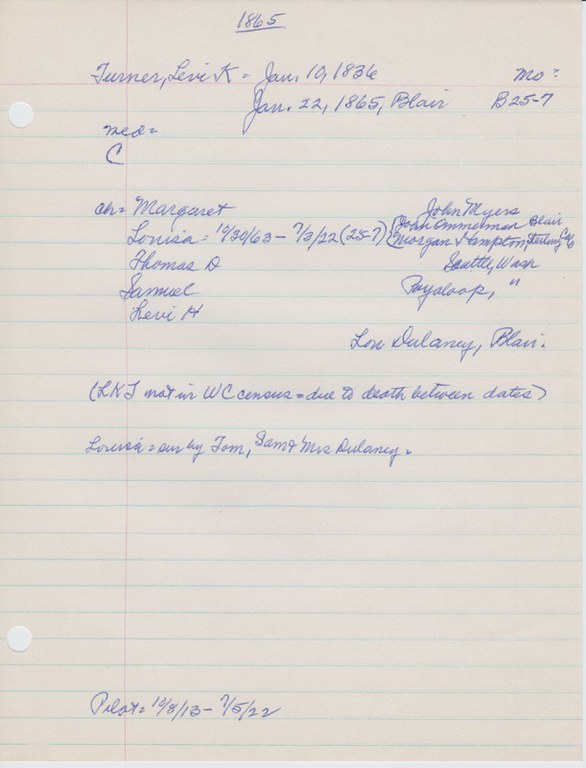 1865
Turner, Levi K = Jan. 10, 1836 Mo =
Jan. 22, 1865, Blair B25-7
med =
C
ch = Margaret John Myers
Louisa = 10/30/63 - 7/3/22 (25-7) John Ammerman Blair
Morgan Hampton, Sterling, Col
Thomas D Seattle, Wash
Samuel Puyaloop, "
Levi H
Lou Dulaney, Blair.
(LKT not in WC census = due to death between dates)
Louisa = sur by Tom, Sam & Mrs Dulaney.
Pilot = 10/8/13 - 7/5/22